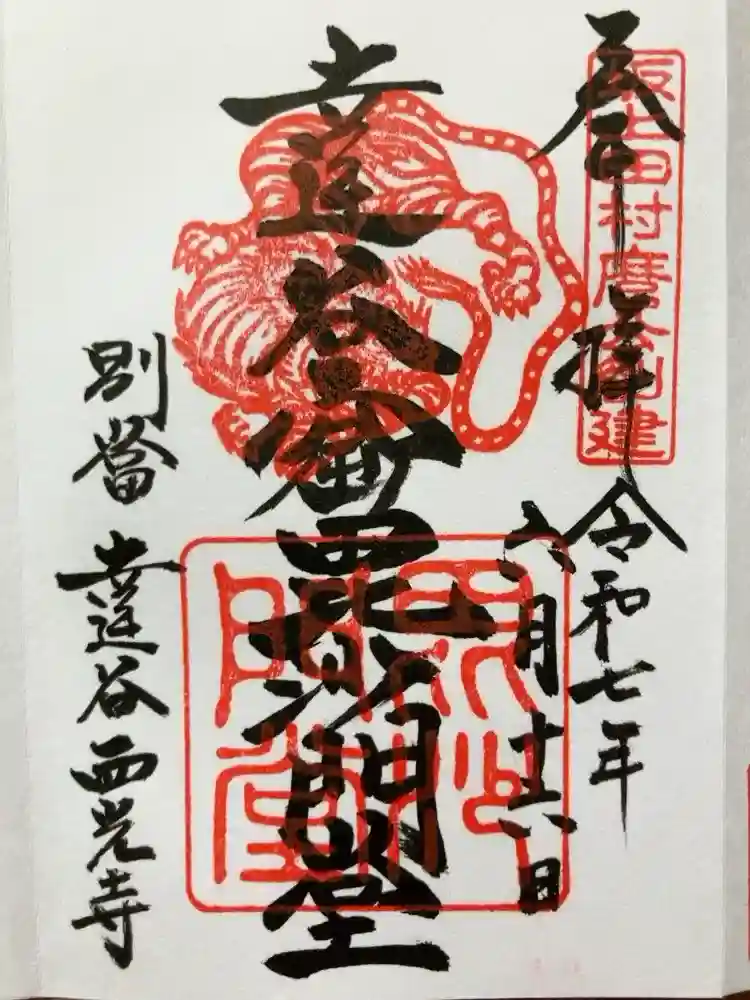 奉拝
坂上田村麿公創建
令和七年
六月十六日
達谷窟毘沙門堂
毘沙門堂
別當 達谷西光寺